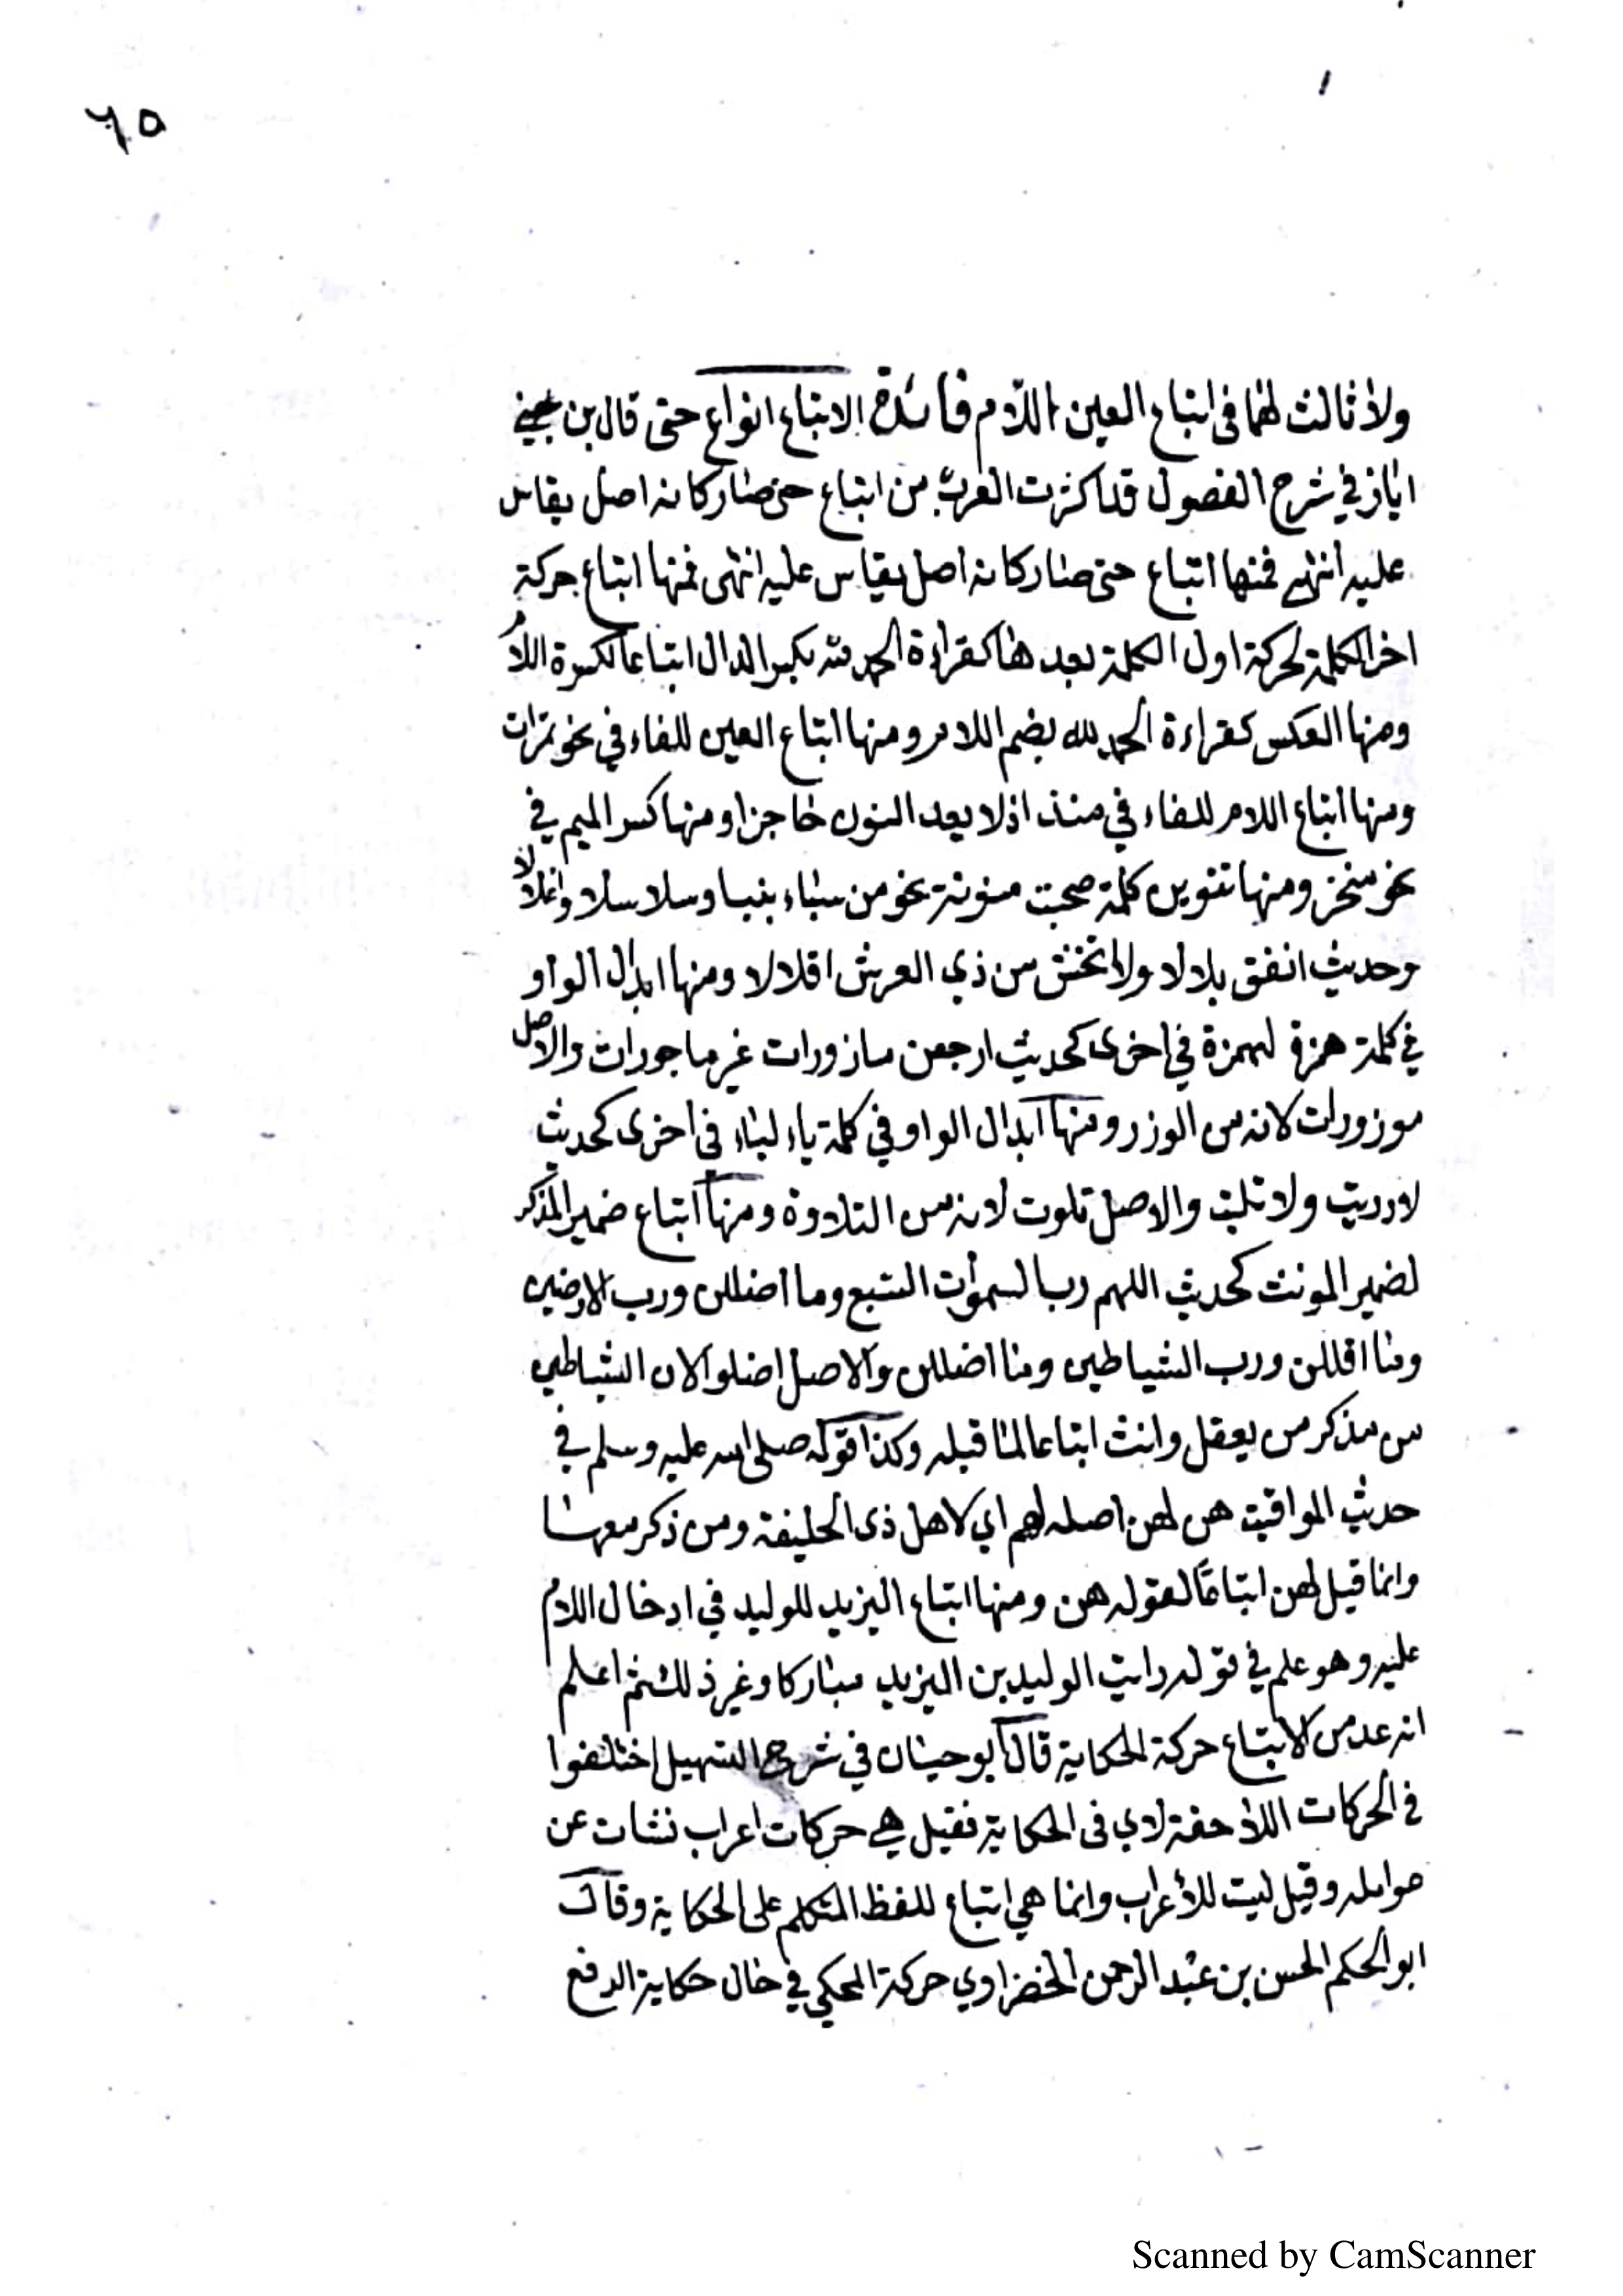 ٦٥
ولا ثالث لهما فى اتباع العين اللام فائدة الاتباع انواع حتى قال بن
اياز في شرح الفصول قد اكثرت العرب من اتباع حتى صار كانه اصل يقاس
عليه انتهى فمنها اتباع حتى صار كانه اصل يقاس عليه انتهى فمنها اتباع حركة
اخر الكلمة لحركة اول الكلمة بعدها كقراءة الحمد لله بكسر الدال اتباعا لكسرة اللام
ومنها العكس كقراءة الحمد لله بضم اللام ومنها اتباع العين للفاء في نحو تمرات
ومنها اتباع اللام للفاء في منذ اذ لا يعد النون حاجزا ومنها كسر الميم في
نحو منخر ومنها تنوين كلمة صحبت منونة نحو من سباء بنبا وسلاسلا واغلالا
وحديث انفق بلالا ولا تخش من ذي العرش اقلالا ومنها ابدال الواو
في كلمة همزة لهمزة في اخرى كحديث ارجعن مازورات غير ماجورات والاصل
موزورات لانه من الوزر ومنها ابدال الواو في كلمة ياء لياء في اخرى كحديث
لادريت ولا تليت والاصل تلوت لانه من التلاوة ومنها اتباع ضمير المذكر
لضمير المونث كحديث اللهم رب السموات السبع وما اضللن ورب الارضين
وما اقللن ورب الشياطين وما اضللن والاصل اضلوا لان الشياطين
من مذكر من يعقل وانث اتباعا لما قبله وكذا قوله صلى الله عليه وسلم في
حديث المواقيت هن لهن اصله لهم اي لاهل ذى الحليفة ومن ذكر معها
وانما قيل لهن اتباعا لقوله هن ومنها اتباع اليزيد للوليد في ادخال اللام
عليه وهو علم في قوله رايت الوليد بن اليزيد مباركا وغير ذلك ثم اعلم
انه عد من الاتباع حركة الحكاية قال ابو حيان في شرح التسهيل اختلفوا
في الحركات اللاحقة لاي فى الحكاية فقيل هي حركات اعراب نشات عن
عوامله وقيل ليت للأعراب وانما هي اتباع للفظ المتكلم على الحكاية وقال
ابو الحكم الحسن بن عبد الرحمن الخضراوي حركة المحكي في حال حكاية الرفع
Scanned by CamScanner